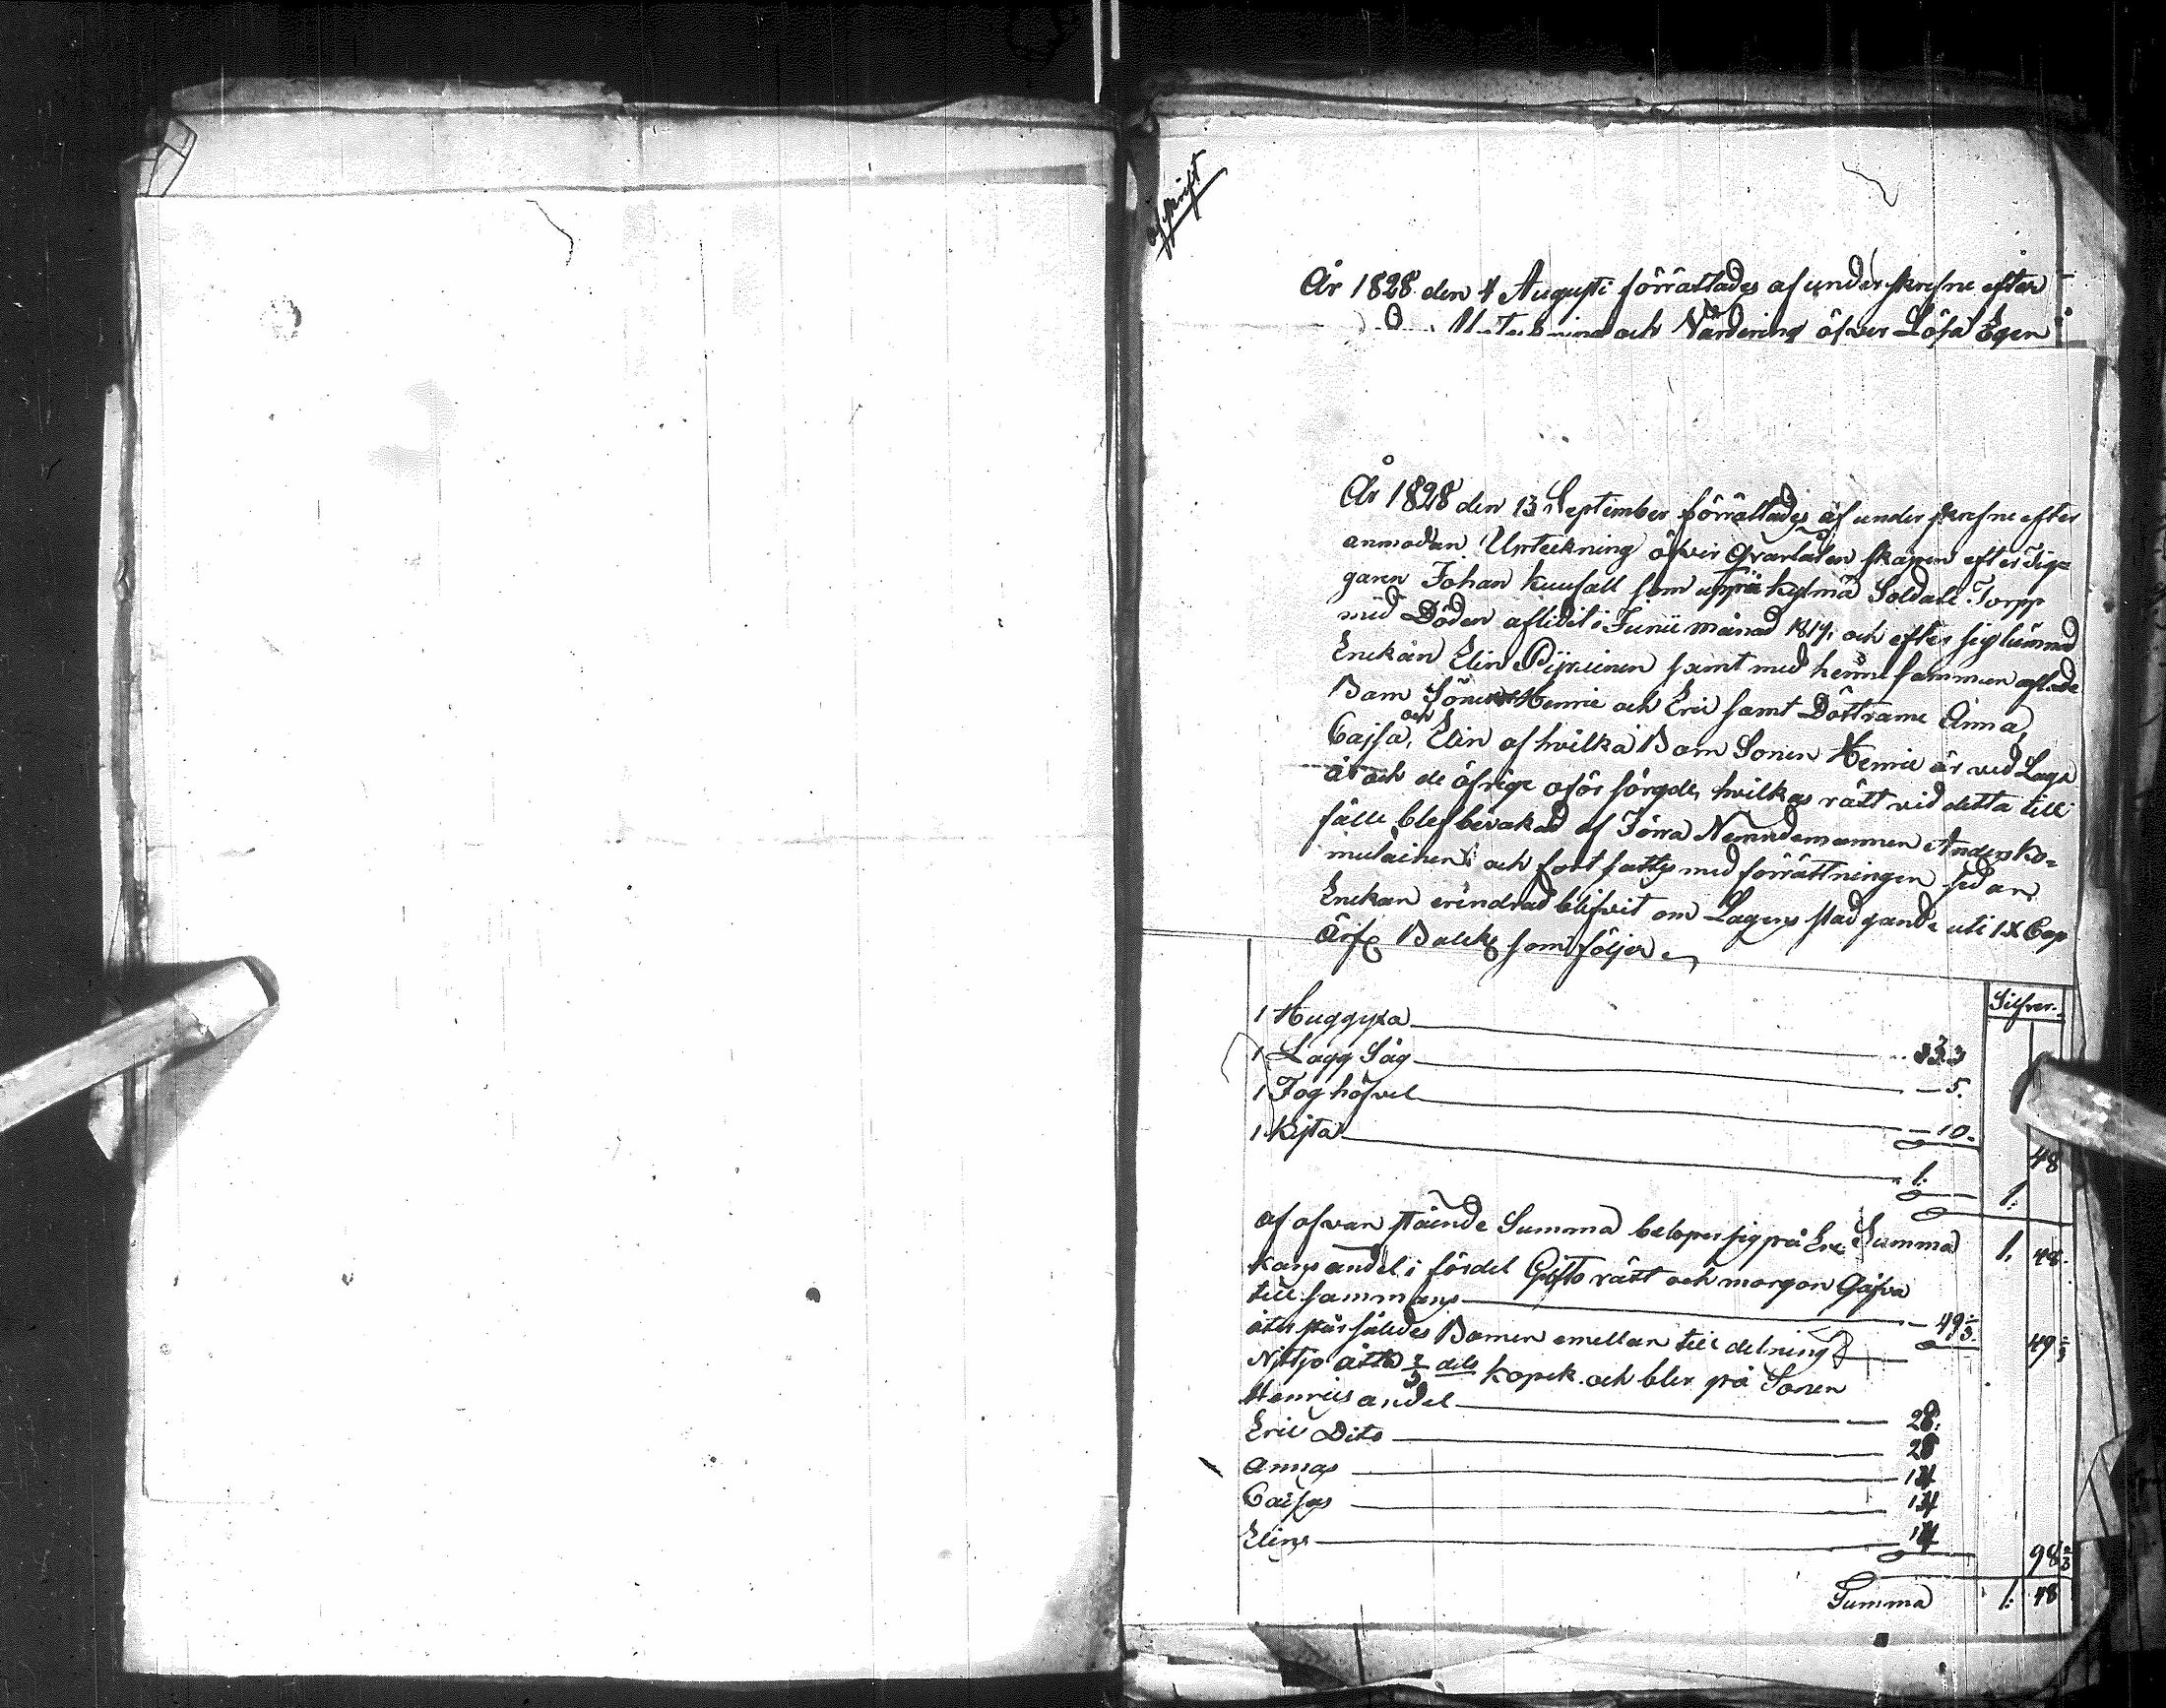 afskrift
År 1828 den 4 Augusti förrättades af underskrefne efter
och Värdering öfver Lösa Egen
År 1828 den 13 September förrättades af underskrefne efter
anmodan Upteckning öfver Qvarlåtenskapen efter Tig-
garen Johan kuusall som uppå kylmä Soldate Torpp
med Döden aflidit i Junii månad 1819, och efter sig lämnad
Enckan Elin samt med henne sammen aflade
Barn Söner Henric och Eric samt Döttrarne Anna,
Caisa, och Elin af hvilka Barn Sonen Henric är ved Laga
år och de öfrige oförsörgde, hvilkas rätt vid detta till
fälle blef bevakad af Förra Nemndemannen Anders Ko-
mulainen; och fortsattes med förrättningen sedan
Enckan erindrad blifvit om Lagens stadgande uti IX Cap
Ärf Balck som följer
Silfver.
1 Huggyxa 33
1 Lagg Såg 5.
1 Foghöfvel 10. 48
1 Kista 1: 1:
Summa 1. 48.
af ofvanstående Summa beloper sig på En-
kans andel i fördel Giftorätt och morgon Gåfva
till sammans 49 1/3. 49 1/3
återstår således Barnen emellan till delning
Nittjo åtta 2/3 dels kopek. och blir på Sonen
Henrics andel 28:
Eric Dito 28
Annas 14
Caisas 14
Elins 14 98 2/3
Summa 1: 48